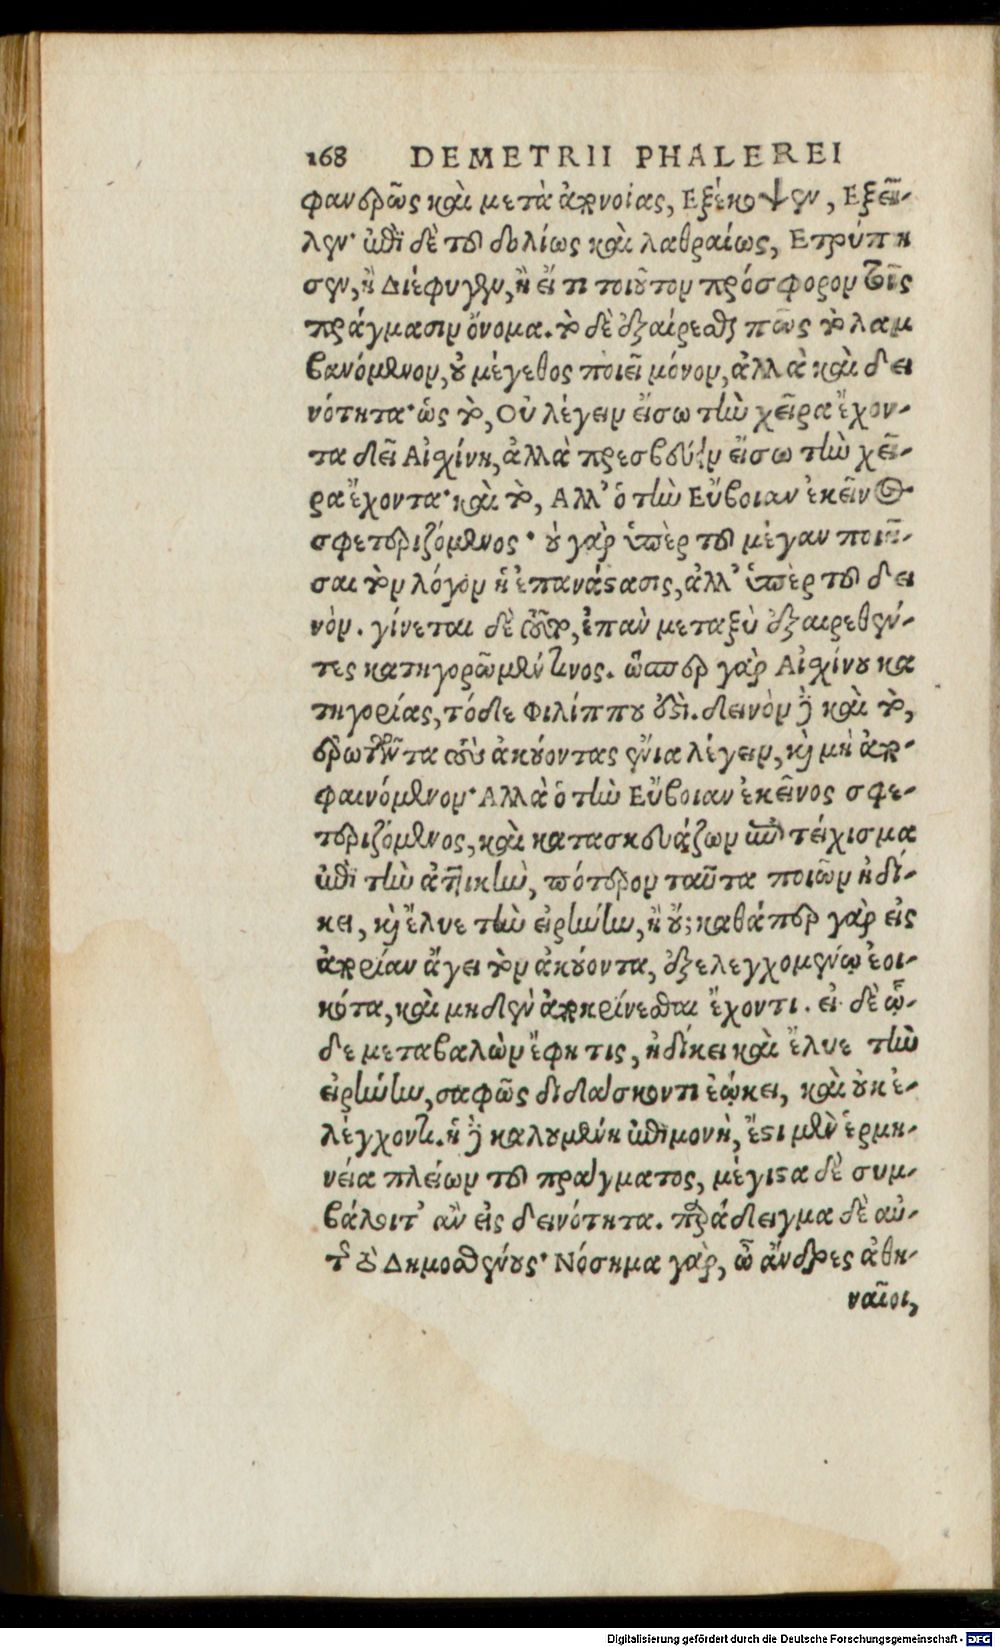 168 DEMETRII PHALEREI
φανερῶς καὶ μετὰ ἀπονοίας, Εξέκοψεν, Εξεῖ-
λεν· ἐπὶ δὲ τοῦ δολίως καὶ λαθραίως, Ετρύπη
σεν, ἢ Διέφυγεν, ἢ εἴ τι τοιοῦτον πρόσφορον τοῖς
πράγμασιν ὄνομα. τὸ δὲ ἐξαίρεσθαί πως τὸ λαμ
βανόμενον, οὐ μέγεθος ποιεῖ μόνον, ἀλλὰ καὶ δει
νότητα· ὡς τὸ, Οὐ λέγειν εἴσω τὴν χεῖρα ἔχον-
τα δεῖ Αἰχίνη, ἀλλὰ πρεσβεύειν εἴσω τὴν χεῖ-
ρα ἔχοντα· καὶ τὸ, Αλλ' ὁ τὴν Εὔβοιαν ἐκεῖνος
σφετεριζόμενος· οὐ γὰρ ὑπὲρ τοῦ μέγαν ποιῆ-
σαι τὸν λόγον ἡ ἐπανάστασις, ἀλλ' ὑπὲρ τοῦ δει
νόν. γίνεται δὲ τοῦτο, ἐπὰν μεταξὺ ἐξαιρεθέν-
τες κατηγορῶμέν τινος. ὥσπερ γὰρ Αἰχίνου κα
τηγορίας, τόδε Φιλίππου ἐστί. δεινὸν δὲ καὶ τὸ,
ἐρωτῶντα τοὺς ἀκούοντας ἔνια λέγειν, καὶ μὴ ἀπο-
φαινόμενον· Αλλὰ ὁ τὴν Εὔβοιαν ἐκεῖνος σφε-
τεριζόμενος, καὶ κατασκευάζων ἐπιτείχισμα
ἐπὶ τὴν ἀττικὴν, πότερον ταῦτα ποιῶν ἠδί-
κει, καὶ ἔλυε τὴν εἰρήνην, ἢ οὔ; καθάπερ γὰρ εἰς
ἀπορίαν ἄγει τὸν ἀκούοντα, ἐξελεγχομένῳ ἐοι-
κότα, καὶ μηδὲν ἀποκρίνεσθαι ἔχοντι. εἰ δὲ ὧ-
δε μεταβαλὼν ἔφη τις, ἠδίκει καὶ ἔλυε τὴν
εἰρήνην, σαφῶς διδάσκοντι ἐῴκει, καὶ οὐκ ἐ-
λέγχοντι. ἡ δὲ καλουμένη ἐπιμονὴ, ἔστι μὲν ἑρμη-
νεία πλείων τοῦ πράγματος, μέγιστα δὲ συμ-
βάλοιτ' ἂν εἰς δεινότητα. παράδειγμα δὲ αὐ-
τῆς τὸ Δημοσθένους· Νόσημα γὰρ, ὦ ἄνδρες ἀθη-
ναῖοι,
Digitalisierung gefördert durch die Deutsche Forschungsgemeinschaft - DFG